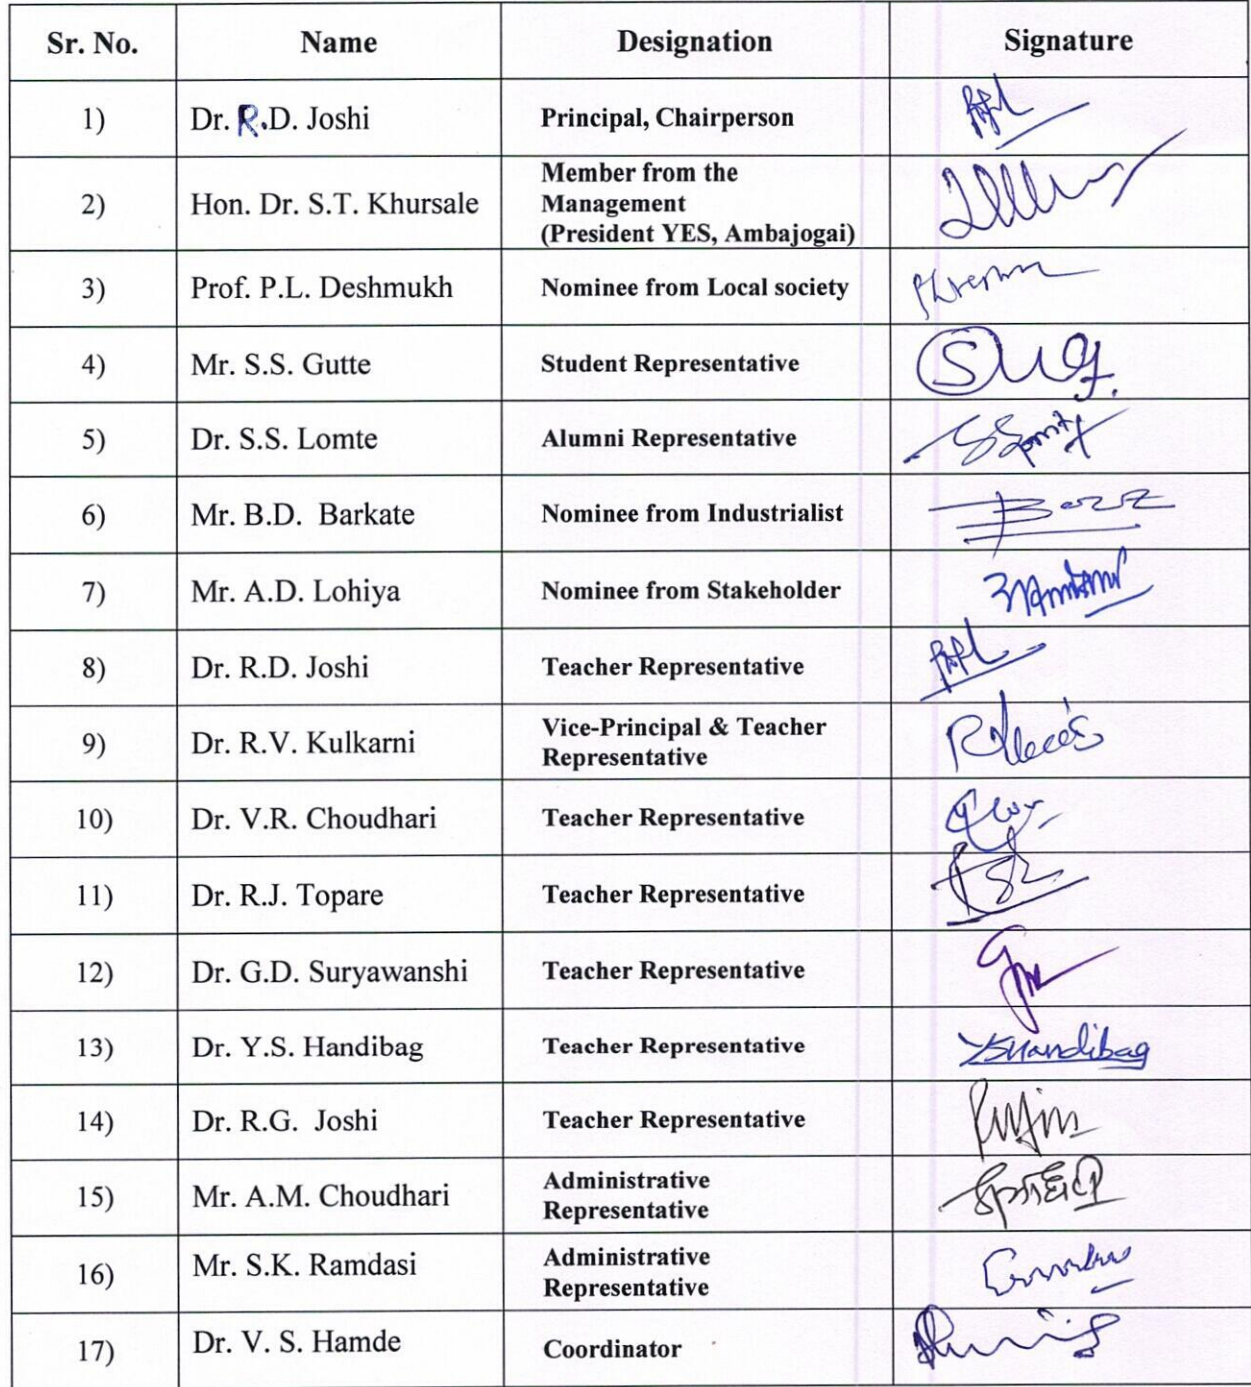 Sr. No. Name Designation Signature
1) Dr. R.D. Joshi Principal, Chairperson
2) Hon. Dr. S.T. Khursale Member from the
Management
(President YES, Ambajogai)
3) Prof. P.L. Deshmukh Nominee from Local society
4) Mr. S.S. Gutte Student Representative
5) Dr. S.S. Lomte Alumni Representative
6) Mr. B.D. Barkate Nominee from Industrialist
7) Mr. A.D. Lohiya Nominee from Stakeholder
8) Dr. R.D. Joshi Teacher Representative
9) Dr. R.V. Kulkarni Vice-Principal & Teacher
Representative
10) Dr. V.R. Choudhari Teacher Representative
11) Dr. R.J. Topare Teacher Representative
12) Dr. G.D. Suryawanshi Teacher Representative
13) Dr. Y.S. Handibag Teacher Representative YSHandibag
14) Dr. R.G. Joshi Teacher Representative
15) Mr. A.M. Choudhari Administrative
Representative
16) Mr. S.K. Ramdasi Administrative
Representative
17) Dr. V. S. Hamde Coordinator